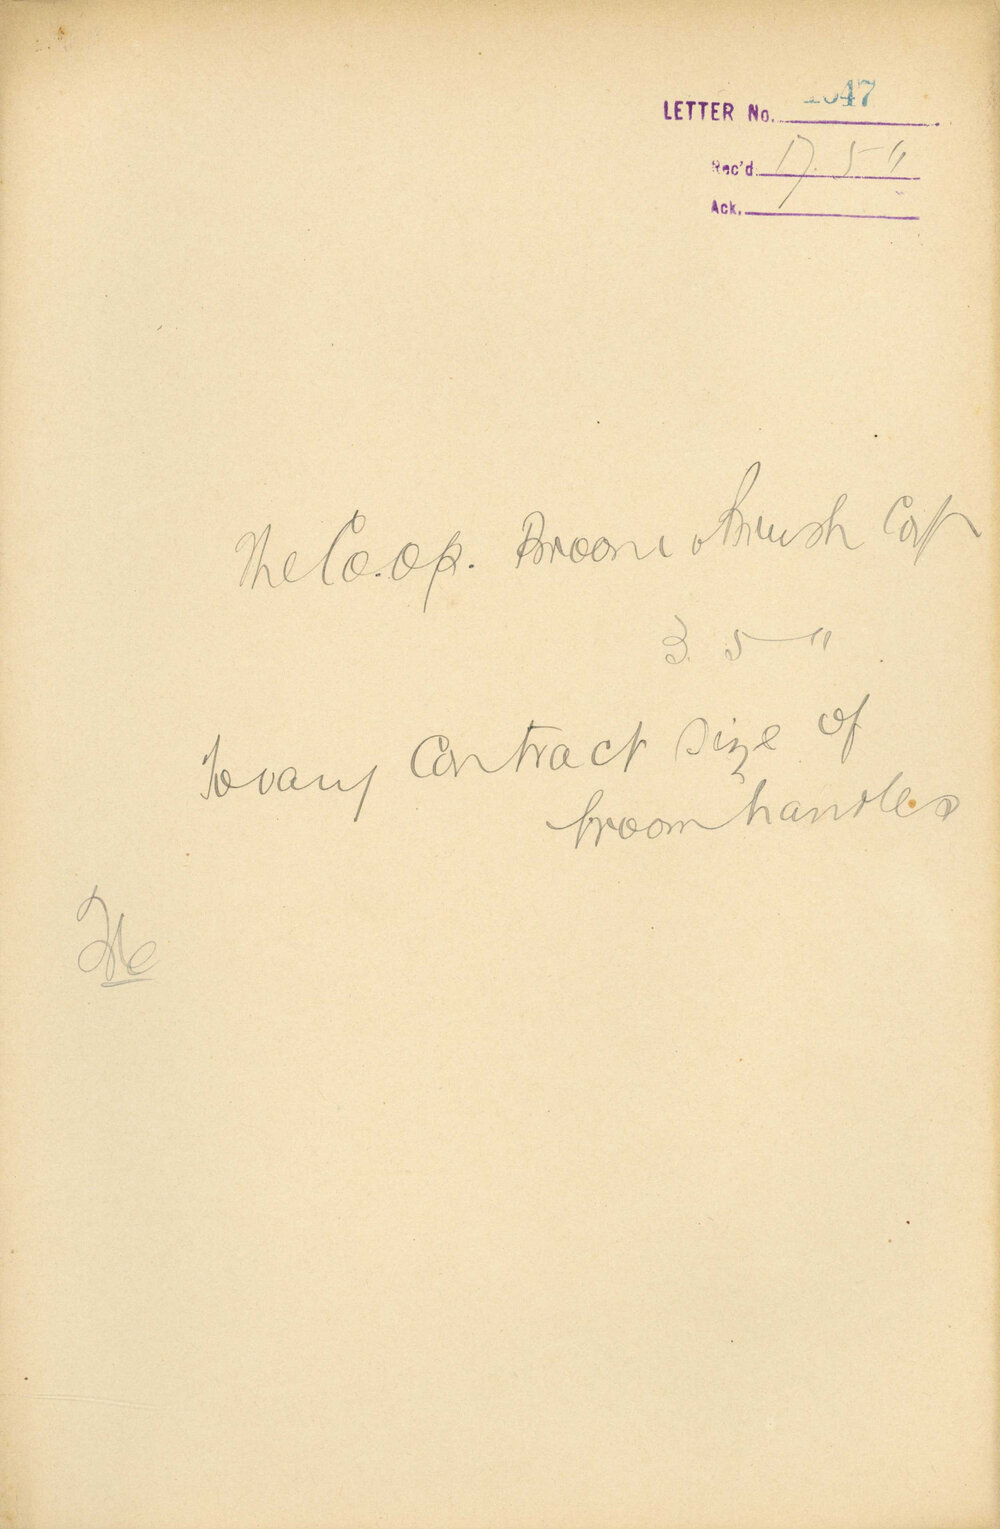 LETTER No. 47
Rec'd 17.5 11
Ack.
The Co.op. Broom & brush Coy
3. 5 11
To vary Contract size of
broom handles
File